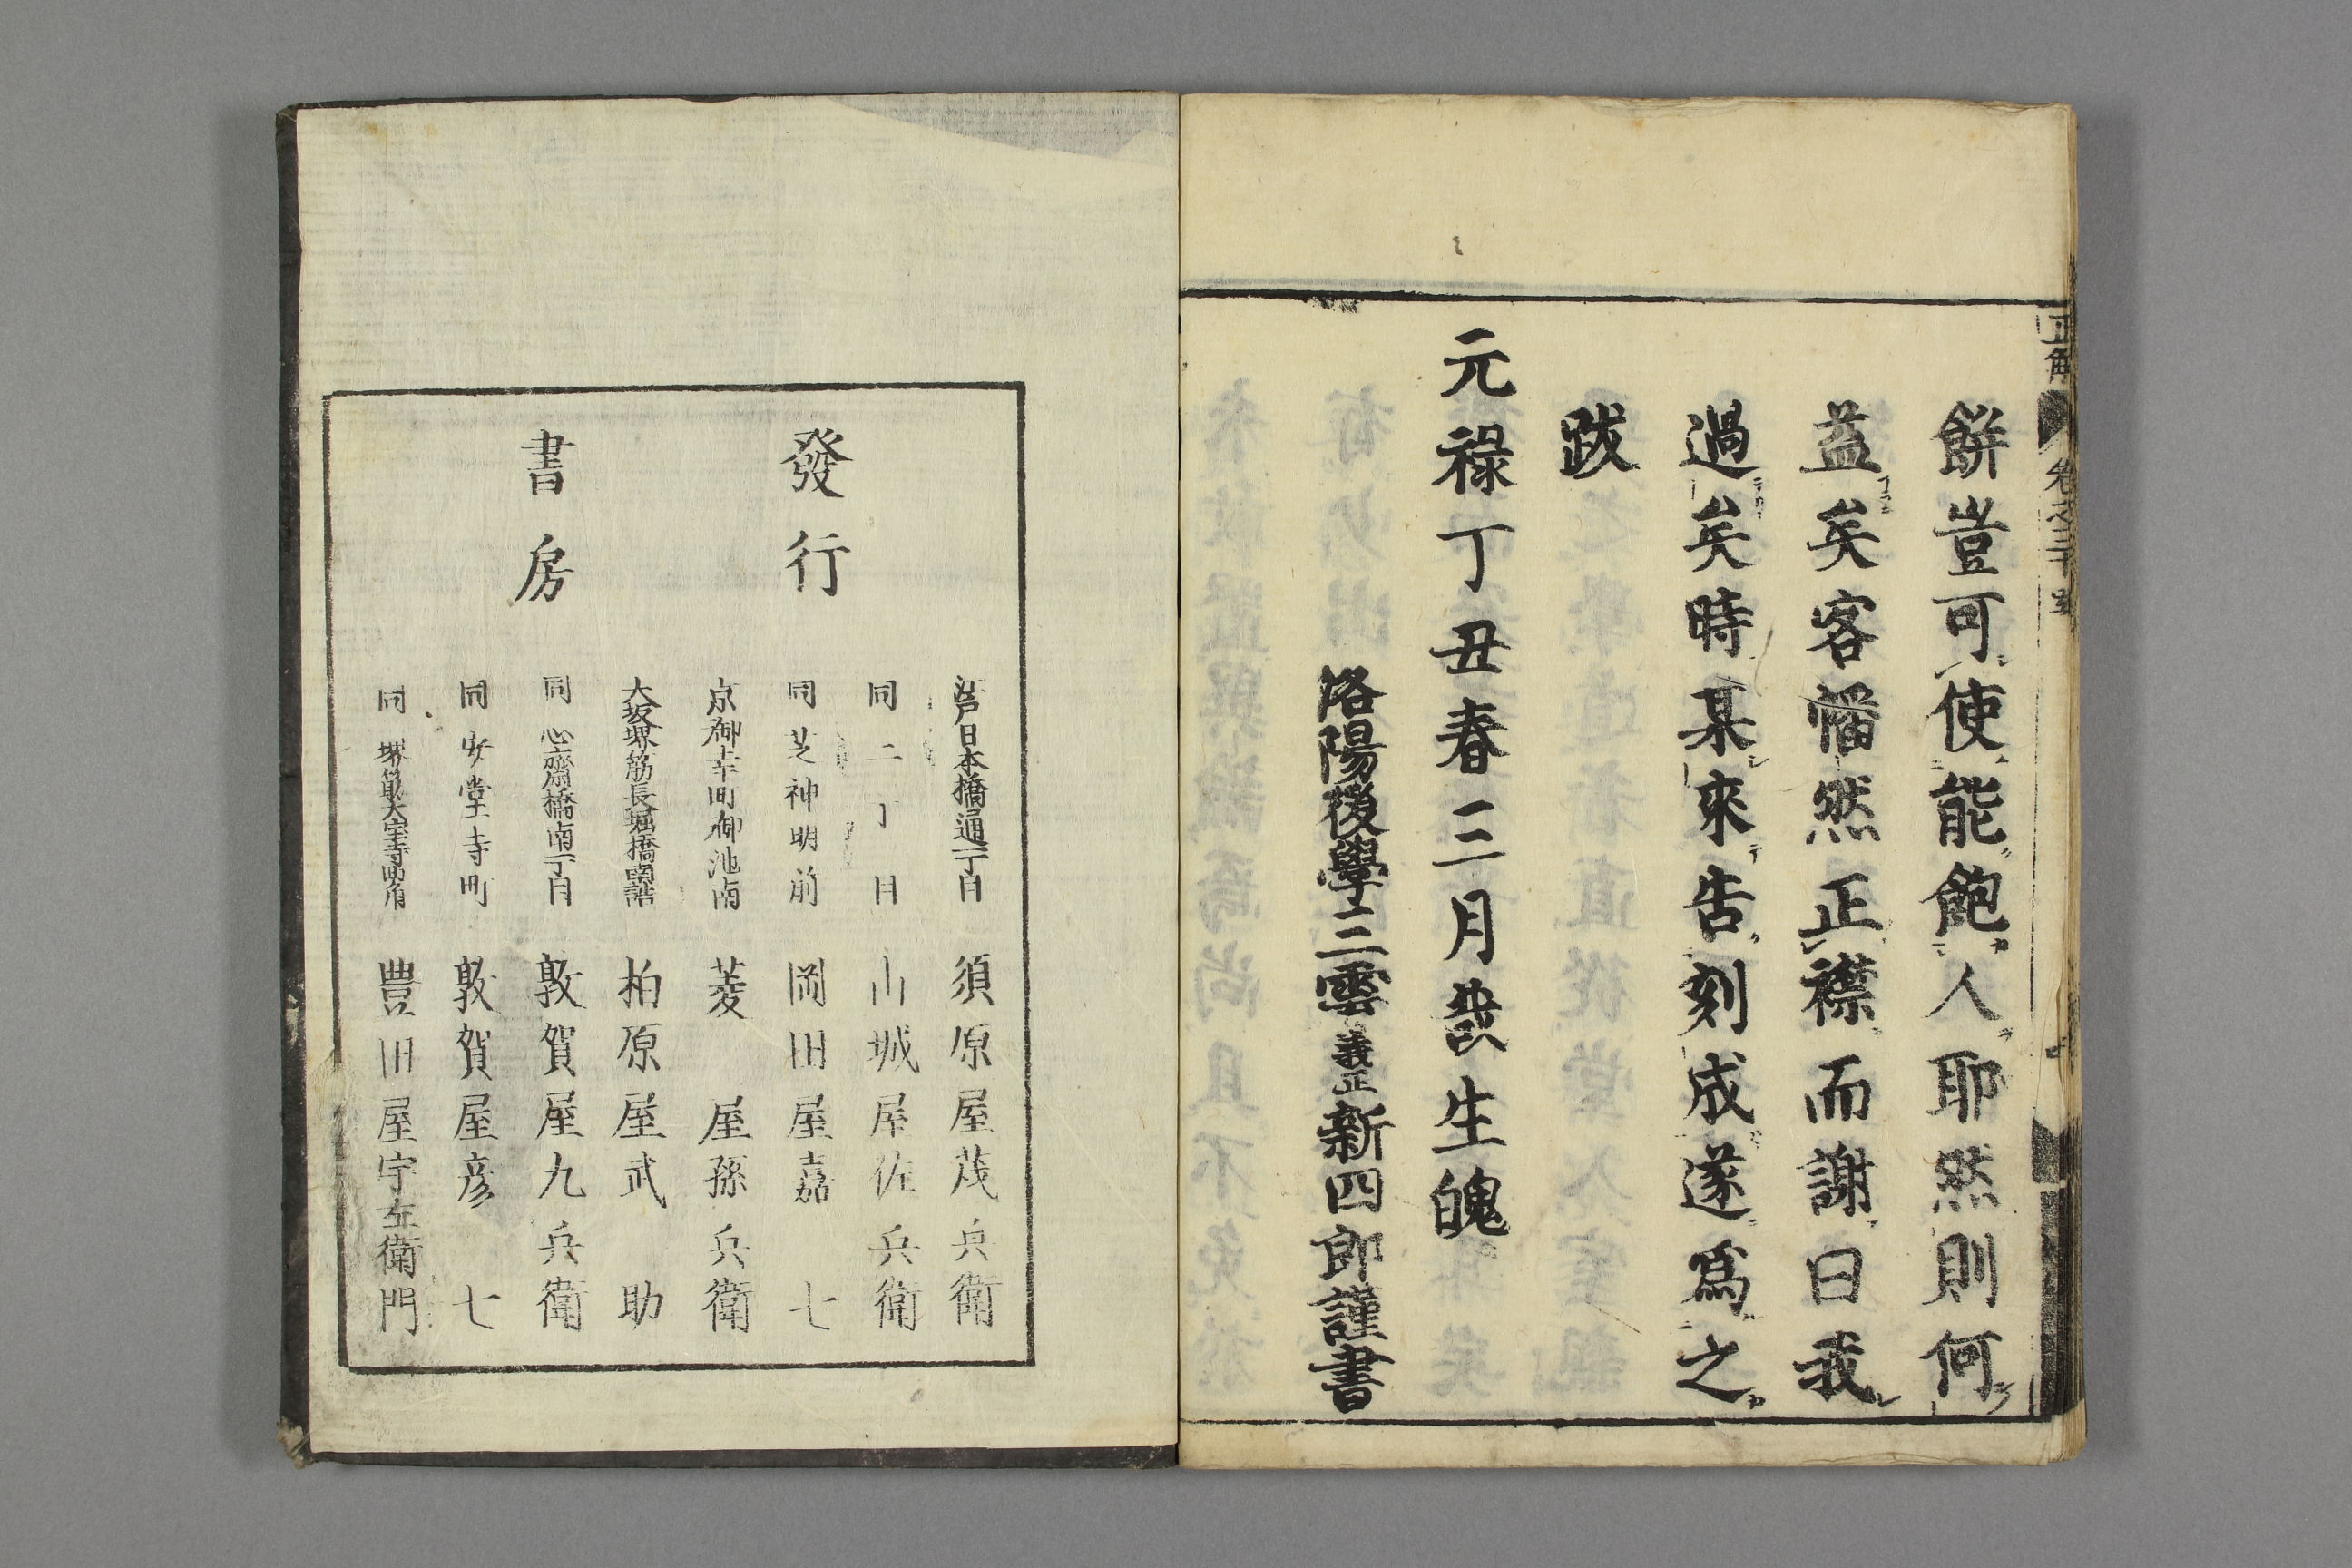 餅豈可使能飽人耶然則何
益矣客幡然正襟而謝曰我
過矣時某來告刻成遂爲之
跋
元祿丁丑春三月哉生魄
洛陽後學三雲義正新四郎謹書
發行
書房
江戸日本橋通一丁目 須原屋茂兵衛
同二丁目 山城屋佐兵衛
同芝神明前 岡田屋嘉七
京御幸町御池南 菱屋孫兵衛
大坂堺筋長堀橋南詰 柏原屋武助
同心齋橋南一丁目 敦賀屋九兵衛
同安堂寺町 敦賀屋彦七
同堺筋大宝寺町角 豊田屋宇左衛門